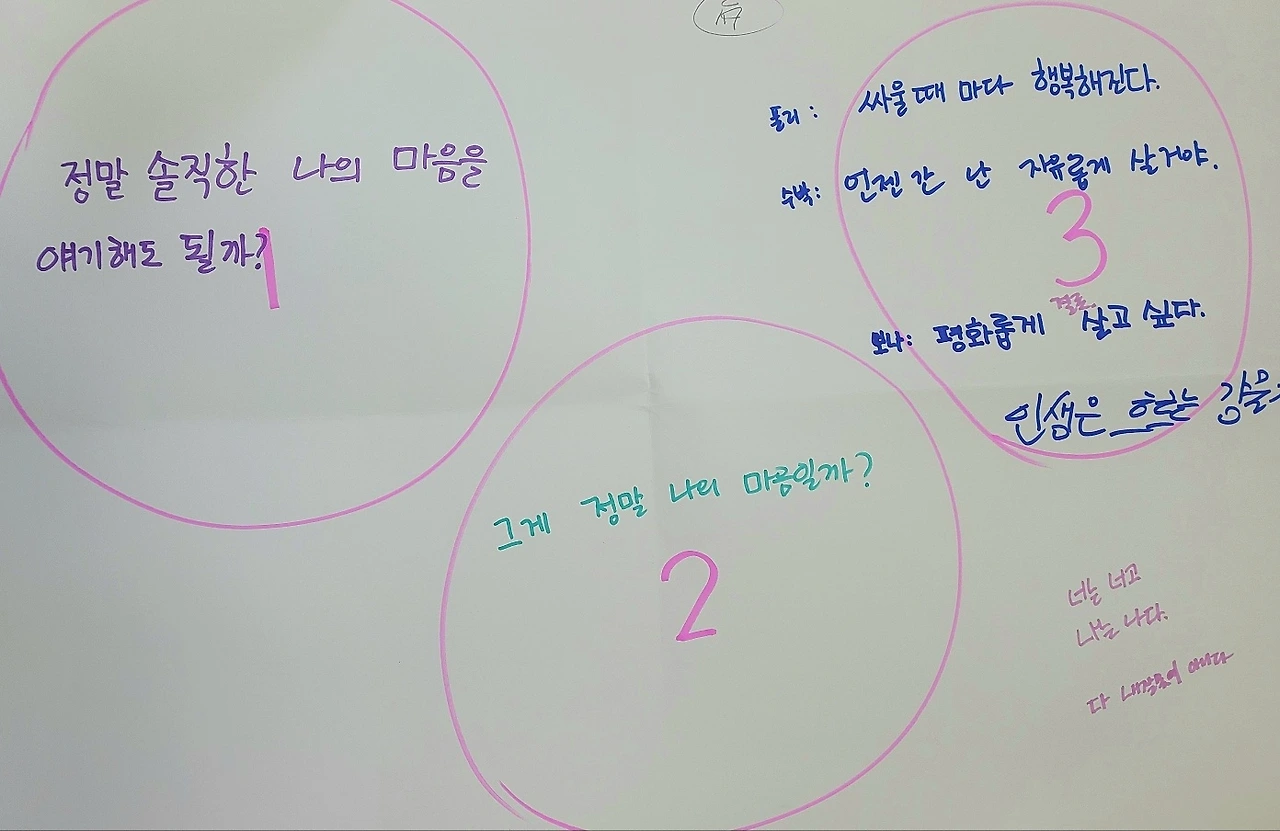 정말 솔직한 나의 마음을
얘기해도 될까?
1
그게 정말 나의 마음일까?
2
폴리 : 싸울때 마다 행복해진다.
수박: 언젠간 난 자유롭게 살거야.
3
보나: 평화롭게 살고 싶다.
인생은 흐르는 강물
너는 너고
나는 나다.
다 내잘못이 아니다